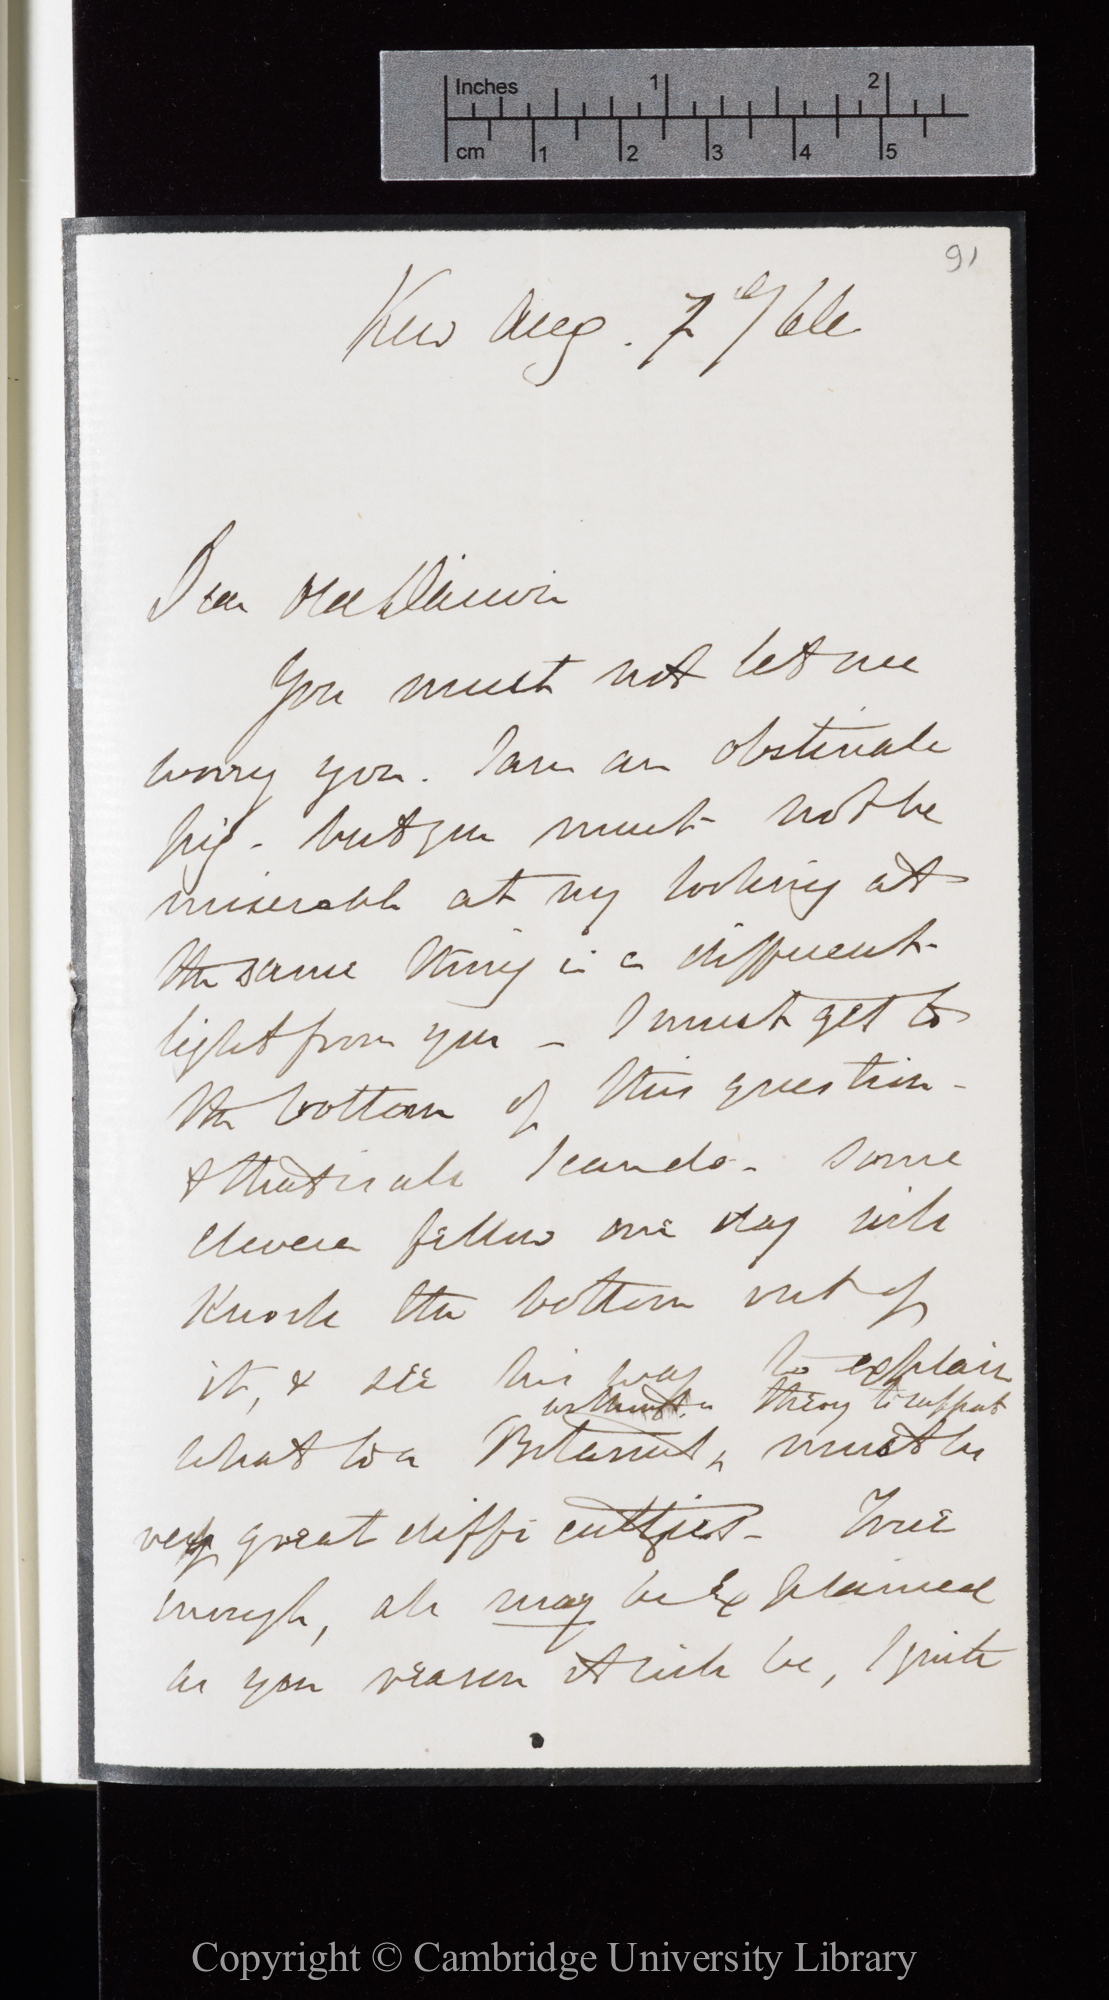 Inches 1 2
cm 1 2 3 4 5
91
Kew Aug. 7th/66
Dear old Darwin
You must not let me
worry you. I am an obstinate
pig – but you must not be
miserable at my looking at
the same thing in a different
light from you – I must get to
the bottom of this question –
& that is all I can do – Some
clever fellow one day will
knock the bottom out of
it, & see his way to explain
without a theory to support
what to a Botanist must be
very great difficulties – True
enough, all may be explained
as you reason it will be, I quite
Copyright © Cambridge University Library